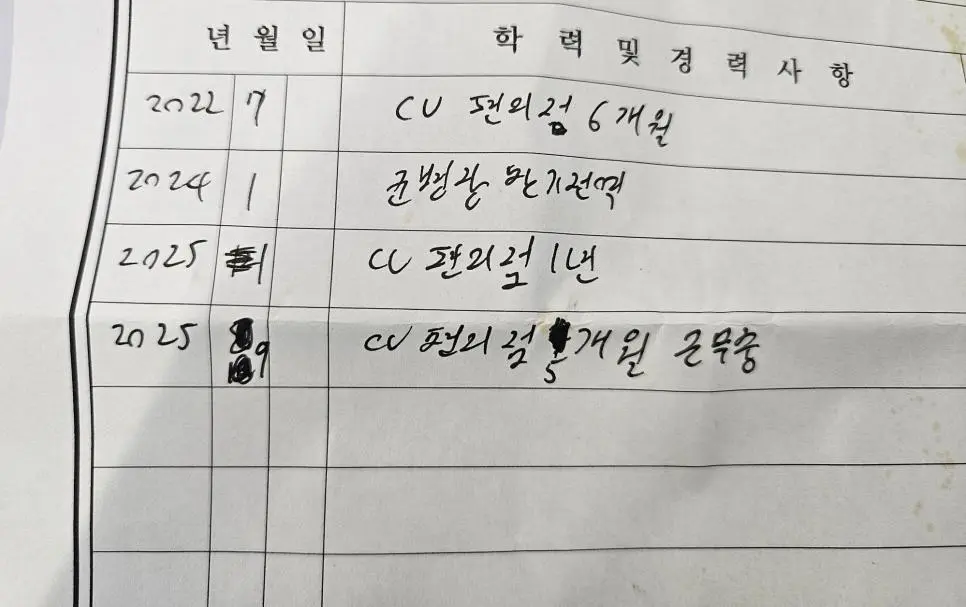 년 월 일 학력 및 경력사항
2022 7 CU 편의점 6개월
2024 1 군병장 만기전역
2025 1 CU 편의점 1년
2025 9 CU 편의점 5개월 근무중